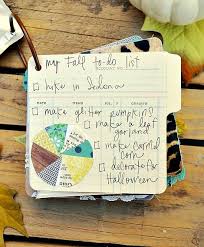 my Fall to-do list
hike in Sedona
DATE
make glitter pumpkins!
make a leaf
garland
make carmel
corn
decorate for
Halloween